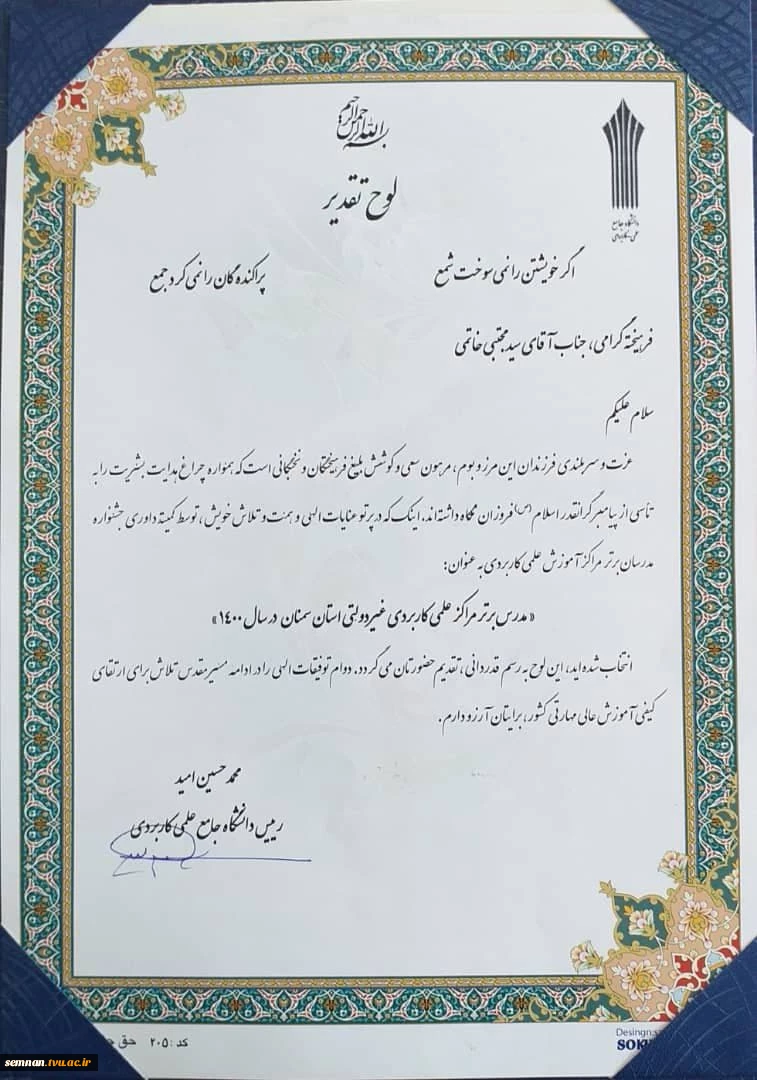 بسم الله الرحمن الرحیم
دانشگاه جامع
علمی کاربردی
لوح تقدیر
اگر خویشتن را نمی سوخت شمع پراکنده گان را نمی کرد جمع
فرهیخته گرامی، جناب آقای سید مجتبی خاتمی
سلام علیکم
عزت و سربلندی فرزندان این مرز و بوم، مرهون سعی و کوشش بلیغ فرهیختگان و نخبگانی است که همواره چراغ هدایت بشریت را به
تاسی از پیامبر گرانقدر اسلام (ص) فروزان نگاه داشته‌اند. اینک که در پرتو عنایات الهی و همت و تلاش خویش، توسط کمیته داوری جشنواره
مدرسان برتر مراکز آموزش علمی کاربردی به عنوان:
«مدرس برتر مراکز علمی کاربردی غیردولتی استان سمنان در سال ۱۴۰۰»
انتخاب شده‌اید، این لوح به رسم قدردانی، تقدیم حضورتان می گردد. دوام توفیقات الهی را در ادامه مسیر مقدس تلاش برای ارتقای
کیفی آموزش عالی مهارتی کشور، برایتان آرزو دارم.
محمد حسین امید
رییس دانشگاه جامع علمی کاربردی
کد: ۲۰۵ حق
Desingn:
SOK
semnan.tvu.ac.ir